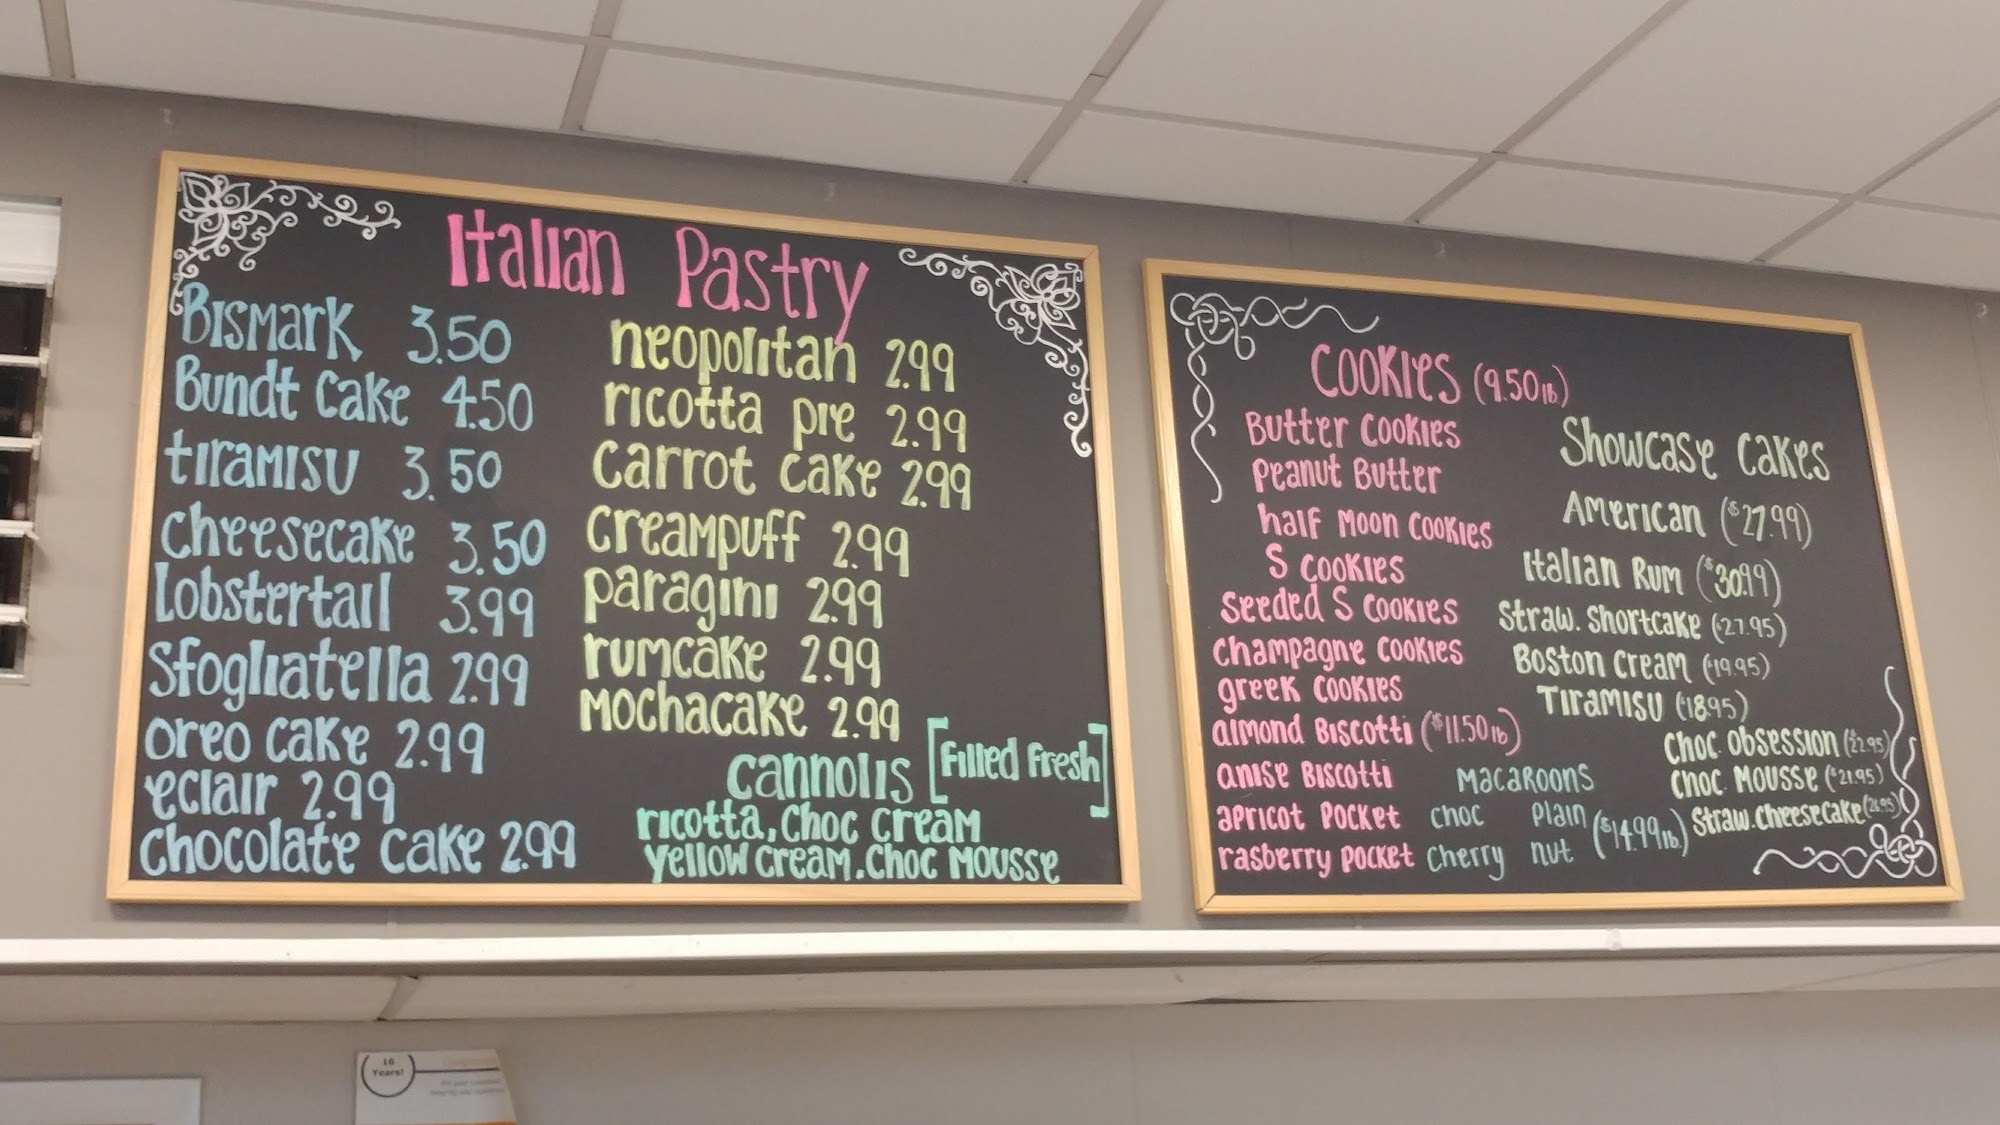 Italian Pastry
Bismark 3.50
Bundt Cake 4.50
tiramisu 3.50
Cheesecake 3.50
Lobstertail 3.99
Sfogliatella 2.99
oreo cake 2.99
eclair 2.99
Chocolate cake 2.99
neopolitan 2.99
ricotta pie 2.99
Carrot Cake 2.99
Creampuff 2.99
paragini 2.99
rumcake 2.99
Mochacake 2.99
Cannolis [Filled Fresh]
ricotta, Choc Cream
yellow cream. Choc Mousse
Cookies (9.50 lb.)
Butter Cookies
Peanut Butter
half Moon Cookies
S Cookies
Seeded S Cookies
Champagne Cookies
greek Cookies
almond Biscotti ($11.50 lb)
anise Biscotti
apricot Pocket
rasberry Pocket
Macaroons
choc Plain
Cherry nut ($14.99 lb.)
Showcase Cakes
American ($27.99)
Italian Rum ($30.99)
Straw. Shortcake ($27.95)
Boston Cream ($19.95)
Tiramisu ($18.95)
Choc. Obsession ($22.95)
Choc. Mousse ($21.95)
Straw. Cheesecake (26.95)
16
Years!